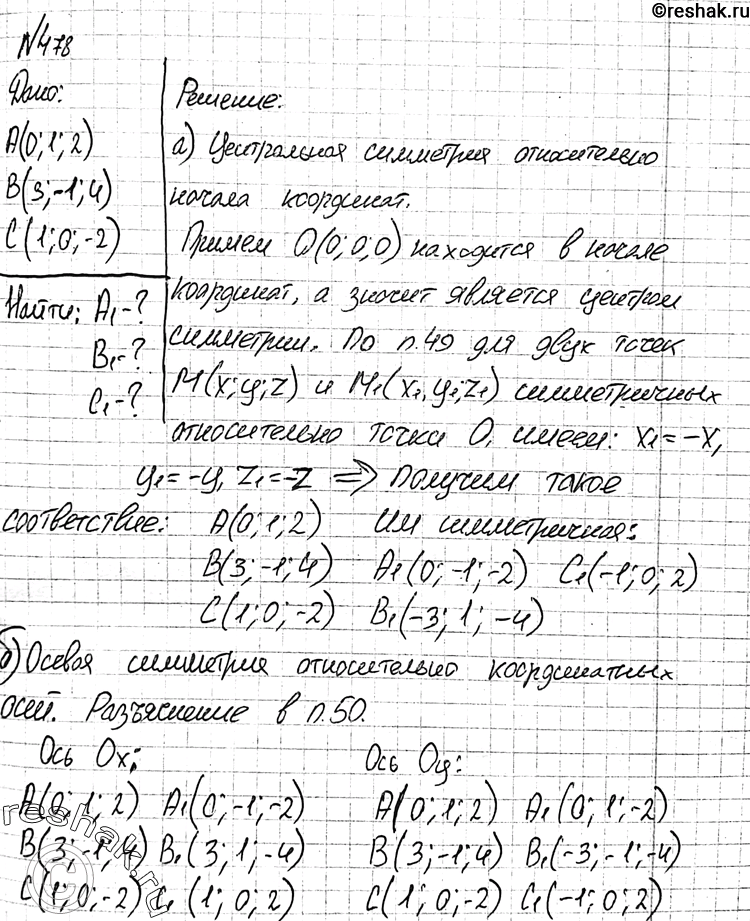 ©reshak.ru
№478
Дано:
A(0; 1; 2)
B(3; -1; 4)
C(1; 0; -2)
Найти: A₁-?
B₁-?
C₁-?
Решение:
а) Центральная симметрия относительно
начала координат.
Примем O(0; 0; 0) находится в начале
координат, а значит является центром
симметрии. По п.49 для двух точек
M(x; y; z) и M₁(x₁, y₁; z₁) симметричных
относительно точки O, имеем: x₁ = -x,
y₁ = -y, z₁ = -z ⇒ Получим такое
соответствие: A(0; 1; 2) Им симметричная:
B(3; -1; 4) A₁(0; -1; -2) C₁(-1; 0; 2)
C(1; 0; -2) B₁(-3; 1; -4)
б) Осевая симметрия относительно координатных
осей. Разъяснение в п.50.
Ось Ox: Ось Oy:
A(0; 1; 2) A₁(0; -1; -2) A(0; 1; 2) A₁(0; 1; -2)
B(3; -1; 4) B₁(3; 1; -4) B(3; -1; 4) B₁(-3; -1; -4)
C(1; 0; -2) C₁(1; 0; 2) C(1; 0; -2) C₁(-1; 0; 2)
reshak.ru
©